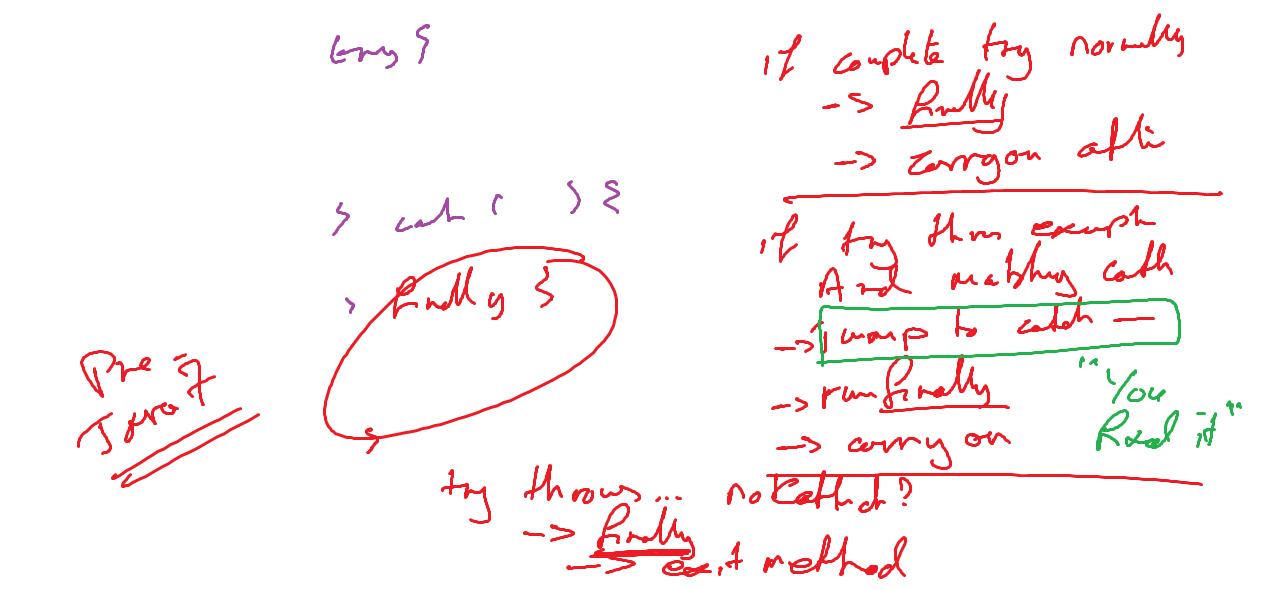 try {
} catch ( ) {
} finally {
Pre 7
Java 7
if complete try normally
-> finally
-> carry on after
if try throws exception
And matching catch
-> jump to catch —
-> run finally
-> carry on
"You
fixed it"
try throws... no catch?
-> finally
-> exit method